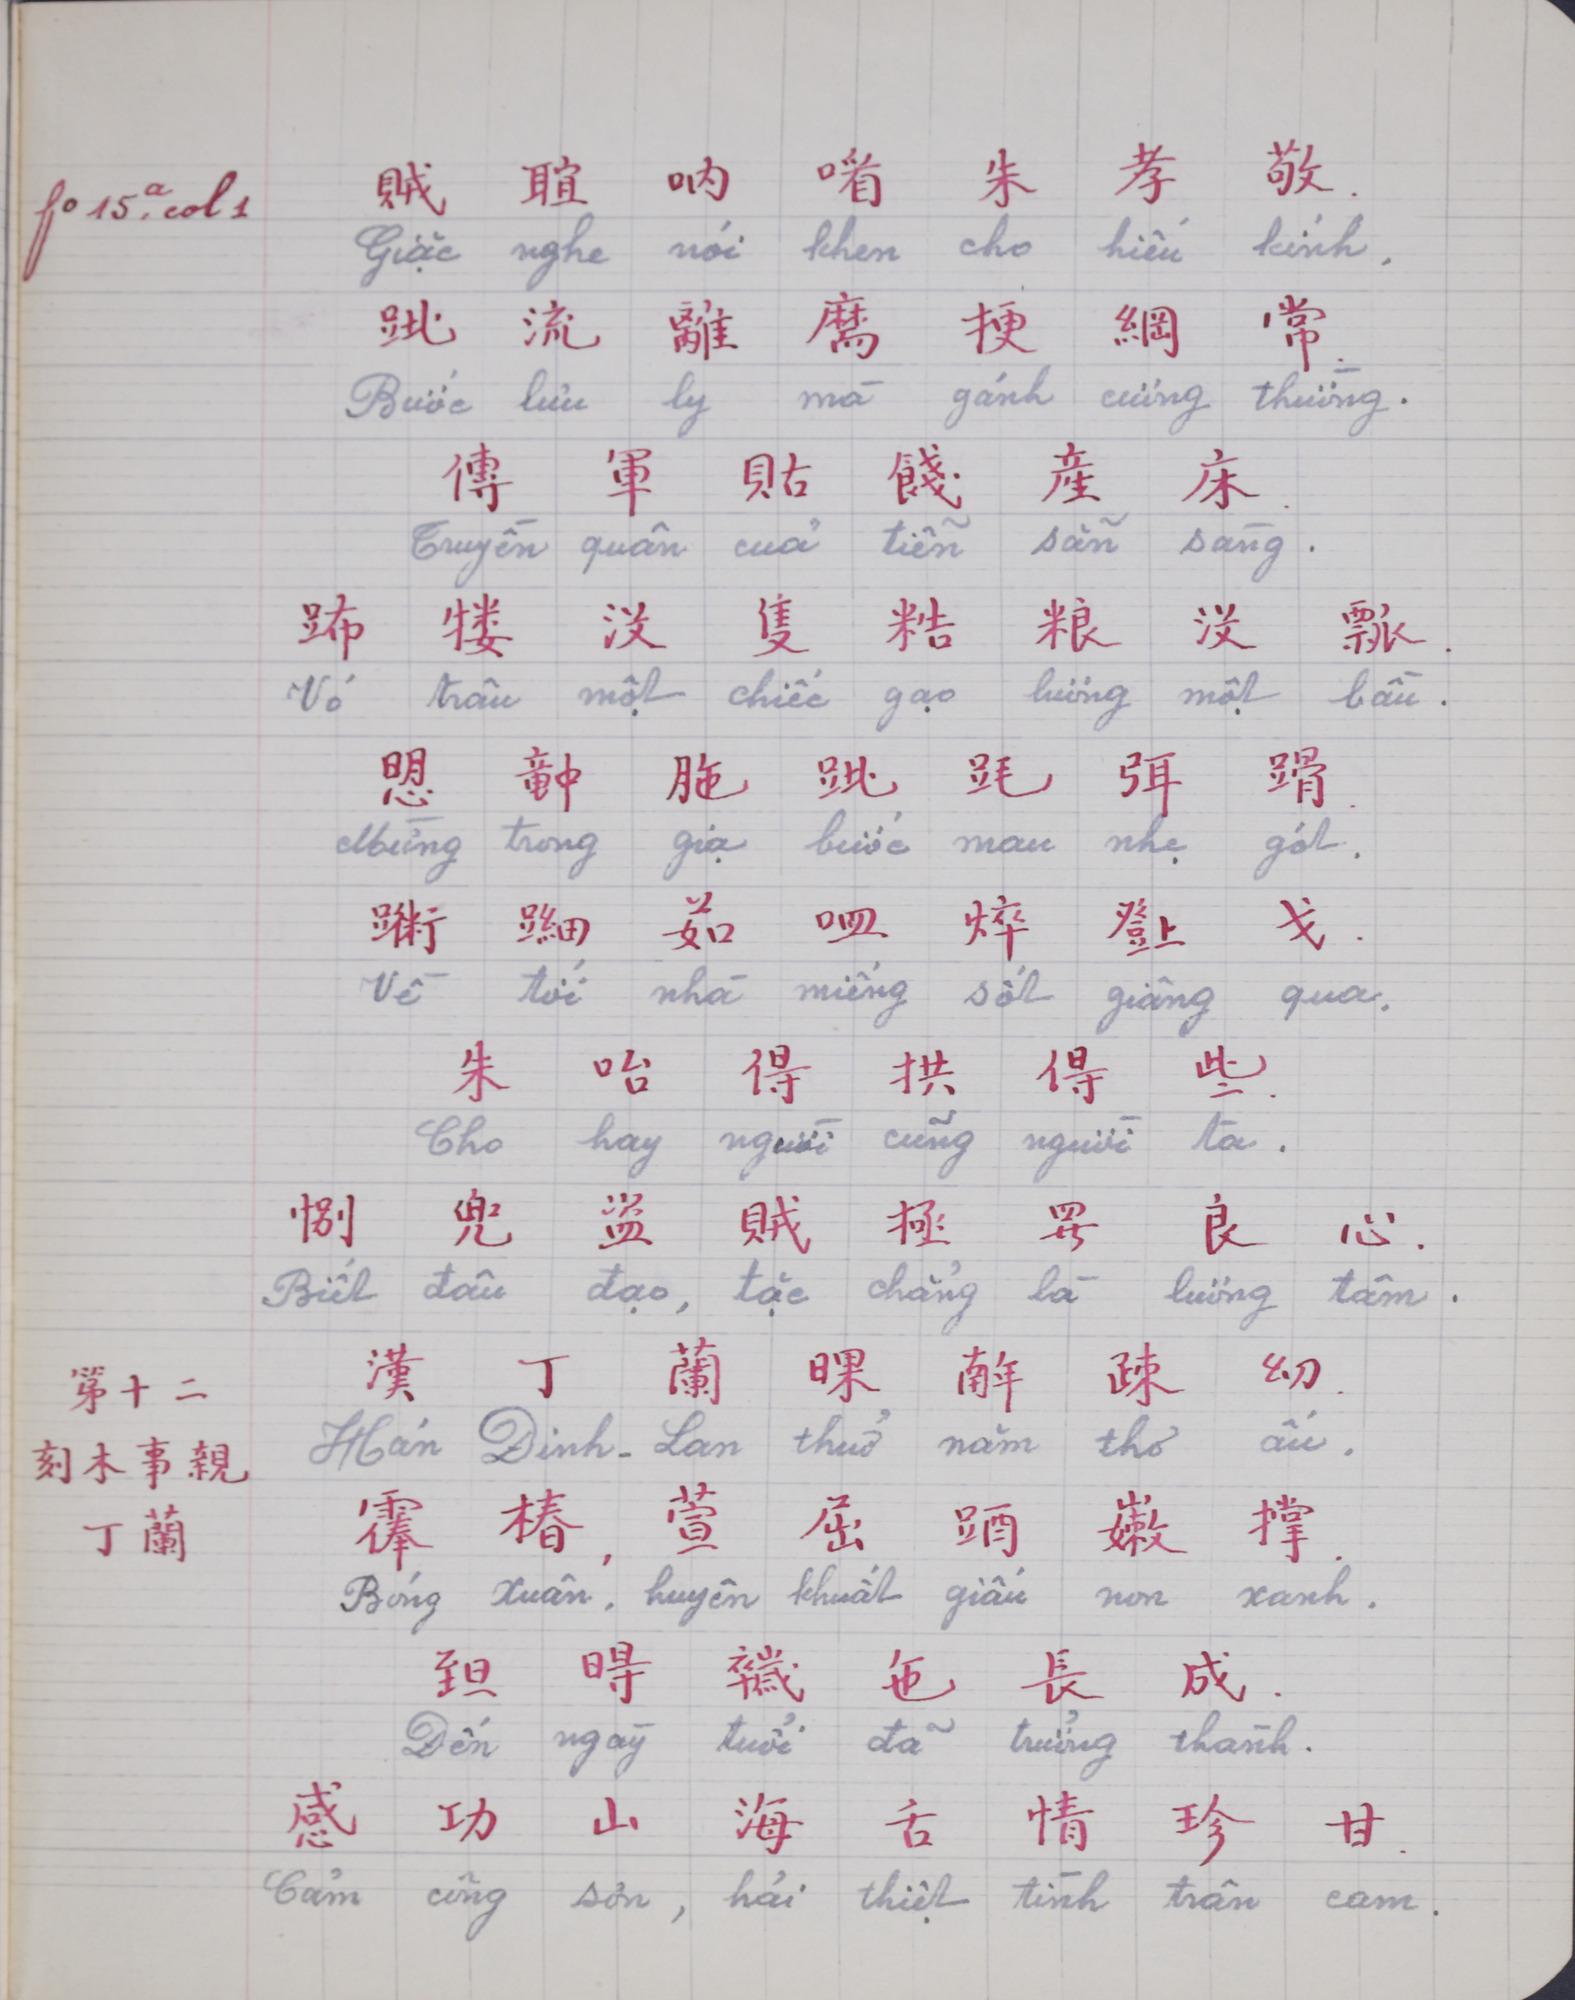 fo 15.a col 1
賊 聒 吶 㗂 朱 孝 敬.
Giặc nghe nói khen cho hiếu kính.
跐 流 離 麿 挭 綱 常.
Bước lưu ly mà gánh cương thường.
傳 軍 貼 餞 産 床.
Truyền quân của tiễn sẵn sàng.
𨁝 㹥 沒 隻 𥺊 粮 沒 瓢.
Vó trâu một chiếc gạo lương một bầu.
𢜠 𥪝 胣 跐 𨀒 弭 𨃴.
Mừng trong giạ bước mau nhẹ gót.
𧗱 細 茹 𠰘 焠 𨅹 戈.
Về tới nhà miếng sốt giâng qua.
朱 咍 得 拱 得 些.
Cho hay người cũng người ta.
別 兜 盗 賊 極 𱺵 良 心.
Biết đâu đạo, tặc chẳng là lương tâm.
第 十 二
刻 木 事 親
丁 蘭
漢 丁 蘭 𣇫 𢆥 疎 幼.
Hán Đinh-Lan thuở năm thơ ấu.
䨦 椿, 萱 屈 𨠣 嫩 撑.
Bóng xuân, huyên khuất giấu non xanh.
𦤾 㝵 歲 㐌 長 成.
Đến ngày tuổi đã trưởng thành.
感 功 山 海 舌 情 珍 甘.
Cảm công sơn, hải thiệt tình trân cam.